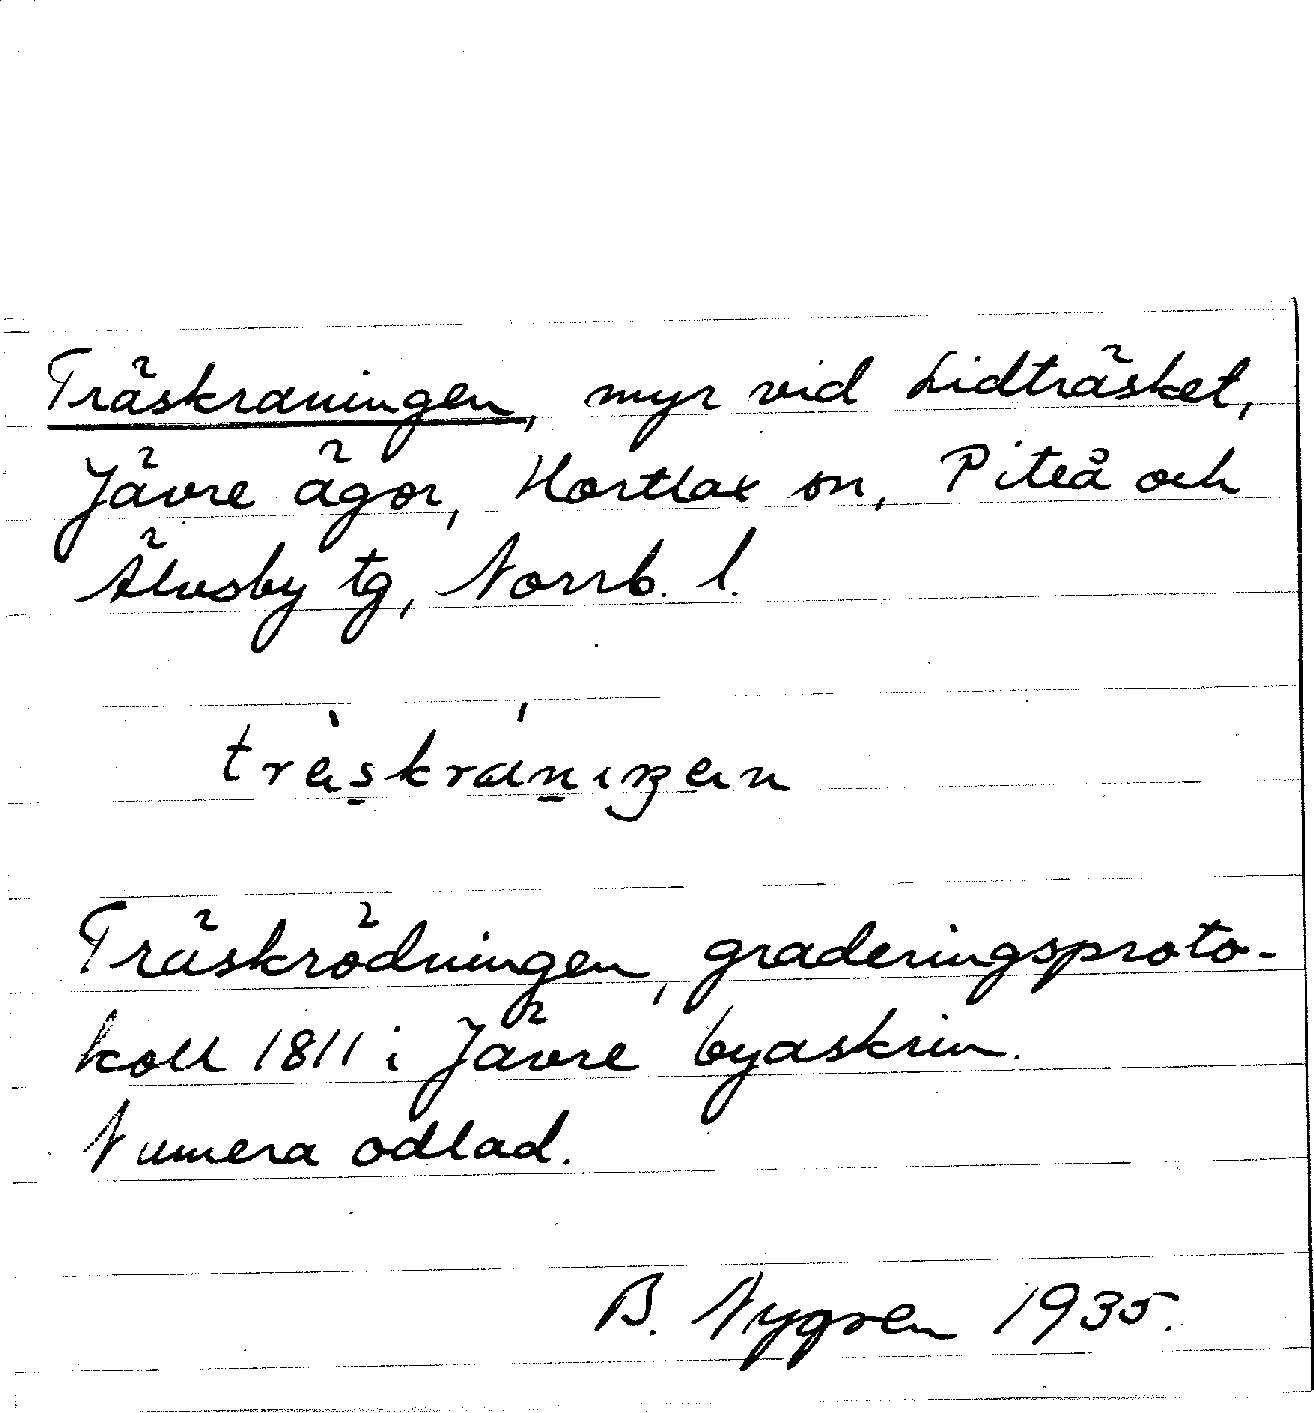 Träskraningen, myr vid Lidträsket,
Jävre ägor, Hortlax sn, Piteå och
Älvsby tg, Norrb. l.
Träskrödningen, graderingsproto-
koll 1811 i Jävre byaskrin.
Numera odlad.
B. Nygren 1935.